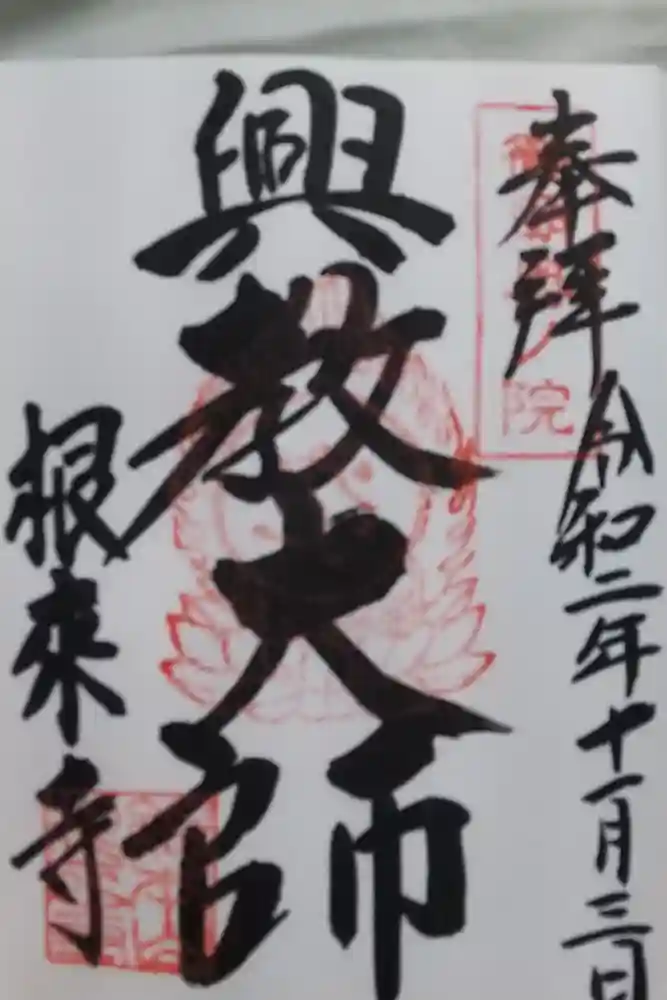 奉拝
令和二年十一月三日
興教大師
根來寺
院